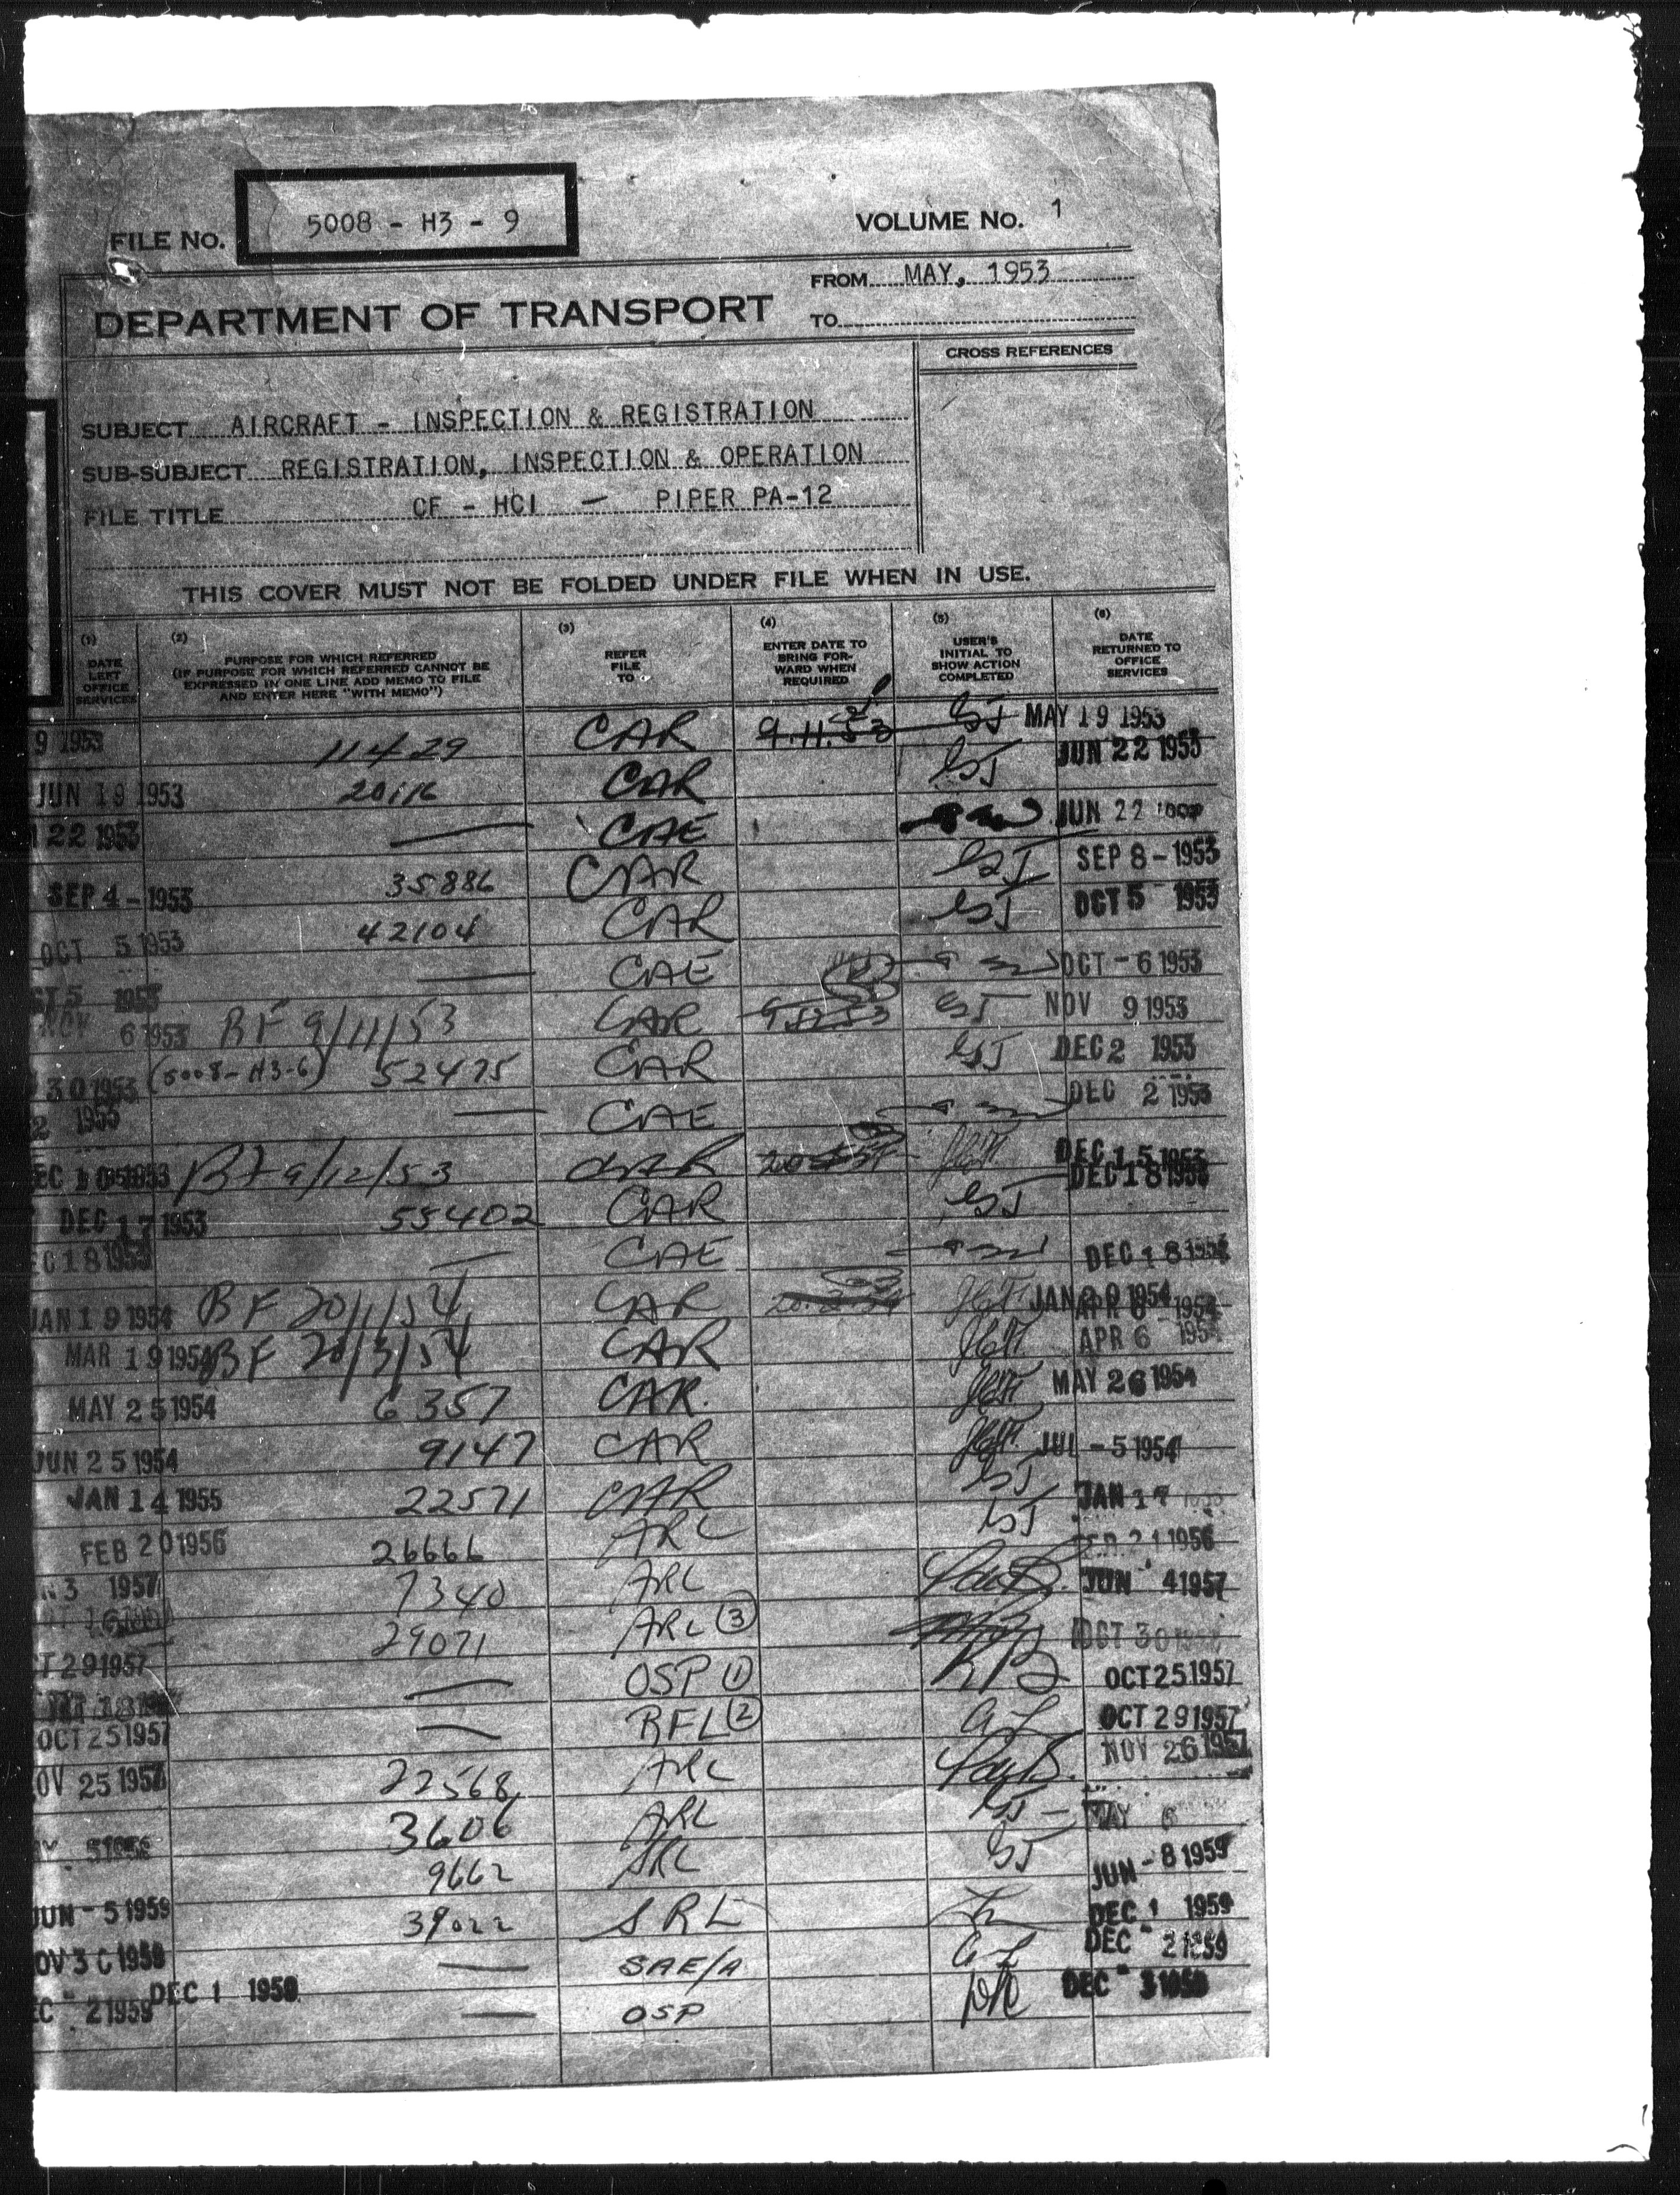 FILE NO. 5008 - H3 - 9 VOLUME No. 1
FROM MAY, 1953
DEPARTMENT OF TRANSPORT TO
CROSS REFERENCES
SUBJECT AIRCRAFT - INSPECTION & REGISTRATION
SUB-SUBJECT REGISTRATION, INSPECTION & OPERATION
FILE TITLE CF - HCI — PIPER PA-12
THIS COVER MUST NOT BE FOLDED UNDER FILE WHEN IN USE.
(1) (2) (3) (4) (5) (6)
DATE LEFT OFFICE SERVICES
PURPOSE FOR WHICH REFERRED
(IF PURPOSE FOR WHICH REFERRED CANNOT BE
EXPRESSED IN ONE LINE ADD MEMO TO FILE
AND ENTER HERE "WITH MEMO")
REFER FILE TO
ENTER DATE TO BRING FOR-WARD WHEN REQUIRED
USER'S INITIAL TO SHOW ACTION COMPLETED
DATE RETURNED TO OFFICE SERVICES
9 1953 11429 CAR 9.11.53 MAY 19 1953
JUN 19 1953 20116 CAR JUN 22 1953
22 1953 — CAE JUN 22
SEP 4 - 1953 35886 CAR SEP 8 - 1953
OCT 5 1953 42104 CAR OCT 5 1953
5 1953 — CAE OCT - 6 1953
6 1953 BF 9/11/53 CAR NOV 9 1953
30 1953 (5008-H3-6) 52475 CAR DEC 2 1953
2 1953 — CAE DEC 2 1953
EC 10 1953 BF 9/12/53 CAR DEC 15 1953
DEC 17 1953 55402 CAR DEC 18 1953
EC 18 1953 — CAE DEC 18
JAN 19 1954 BF 20/1/54 CAR JAN 20 1954
APR 6 1954
MAR 19 1954 BF 20/3/54 CAR APR 6 1954
MAY 25 1954 6357 CAR. MAY 26 1954
JUN 25 1954 9147 CAR JUL - 5 1954
JAN 14 1955 22571 CAR JAN 17
FEB 20 1956 26666 ARL 21 1956
3 1957 7340 ARL JUN 4 1957
T 29 1957 29071 ARL (3) OCT 30
— OSP (1) OCT 25 1957
OCT 25 1957 — RFL (2) OCT 29 1957
OV 25 1957 22568 ARL NOV 26 1957
3606 ARL MAY 6
JUN - 5 1959 9662 ARL JUN - 8 1959
OV 30 1959 39022 SRL DEC 1 1959
DEC 1 1959 — SAE/A DEC 2 1959
EC 2 1959 — OSP DEC 3 1959